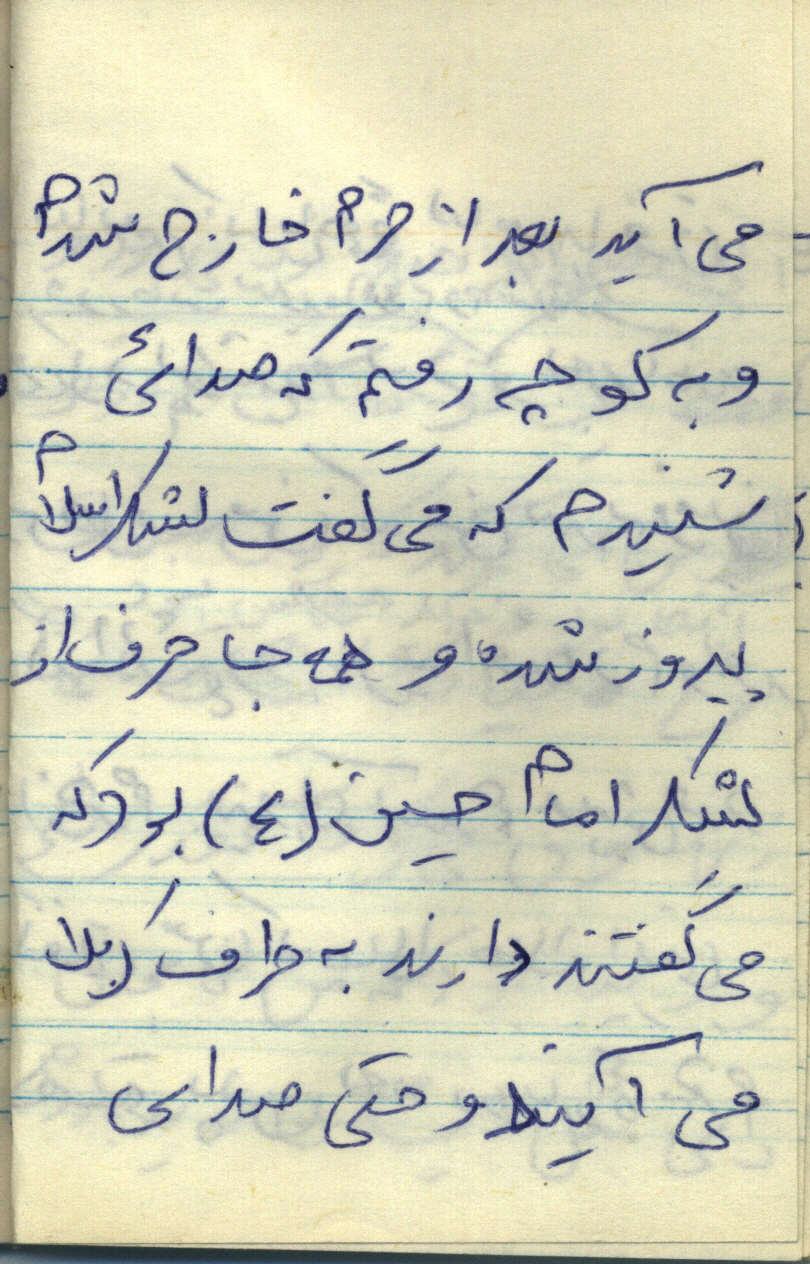 می آید بعد از حرم خارج شدم
و به کوچه رفتم که صدائی
شنیدم که می گفت لشکر اسلام
پیروز شده و همه جا حرف از
لشکر امام حسین (ع) بود که
می گفتند دارند به طراف کربلا
می آیند و حتی صدایی